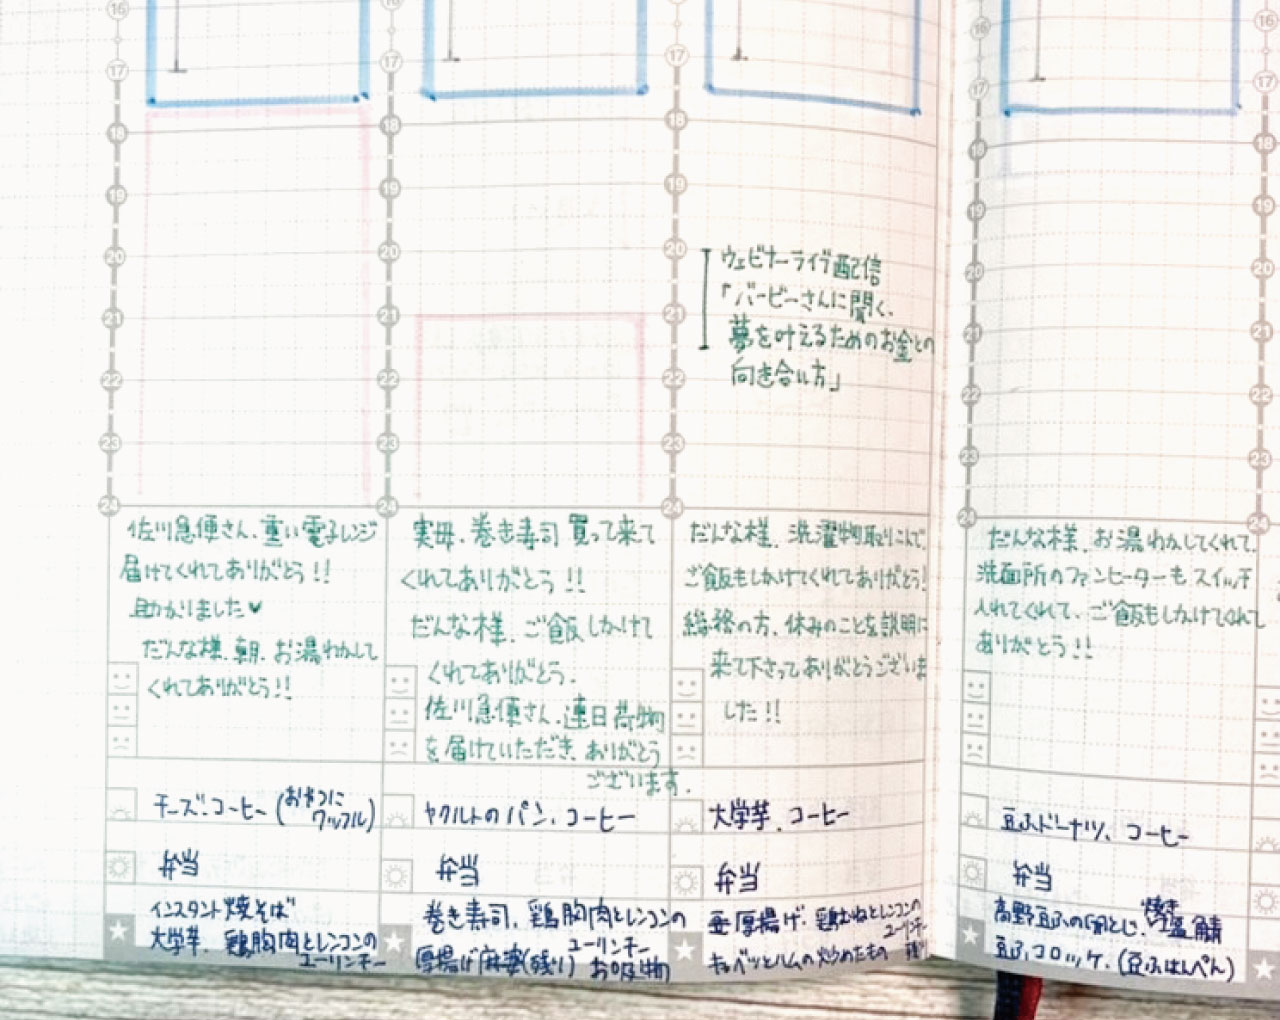 16
17
18
19
20
21
22
23
24
佐川急便さん、重い電子レンジ
届けてくれてありがとう!!
助かりました♥
だんな様、朝、お湯わかして
くれてありがとう!!
チーズ、コーヒー(おやつに
ワッフル)
弁当
インスタント焼そば
大学芋、鶏胸肉とレンコンの
ユーリンチー
16
17
18
19
20
21
22
23
24
実母、巻き寿司買って来て
くれてありがとう!!
だんな様、ご飯しかけて
くれてありがとう.
佐川急便さん、連日荷物
を届けていただき、ありがとう
ございます.
ヤクルトのパン、コーヒー
弁当
巻き寿司、鶏胸肉とレンコンの
ユーリンチー
厚揚げ麻婆(残り) お吸い物
17
18
19
20
21
22
23
24
ウェビナーライブ配信
「バービーさんに聞く、
夢を叶えるためのお金との
向き合い方」
だんな様、洗濯物取りこんで、
ご飯もしかけてくれてありがとう!
総務の方、休みのことを説明に
来て下さってありがとうございま
した!!
大学芋、コーヒー
弁当
厚揚げ、鶏むねとレンコンの
ユーリンチー
キャベツとハムの炒めたもの 残り
16
17
18
19
20
21
22
23
24
だんな様、お湯わかしてくれて、
洗面所のファンヒーターもスイッチ
入れてくれて、ご飯もしかけてくれて
ありがとう!!
豆ふドーナツ、コーヒー
弁当
高野豆ふの卵とじ、焼き塩鯖
豆ふコロッケ、(豆ふはんぺん)
16
17
18
19
20
21
22
23
24